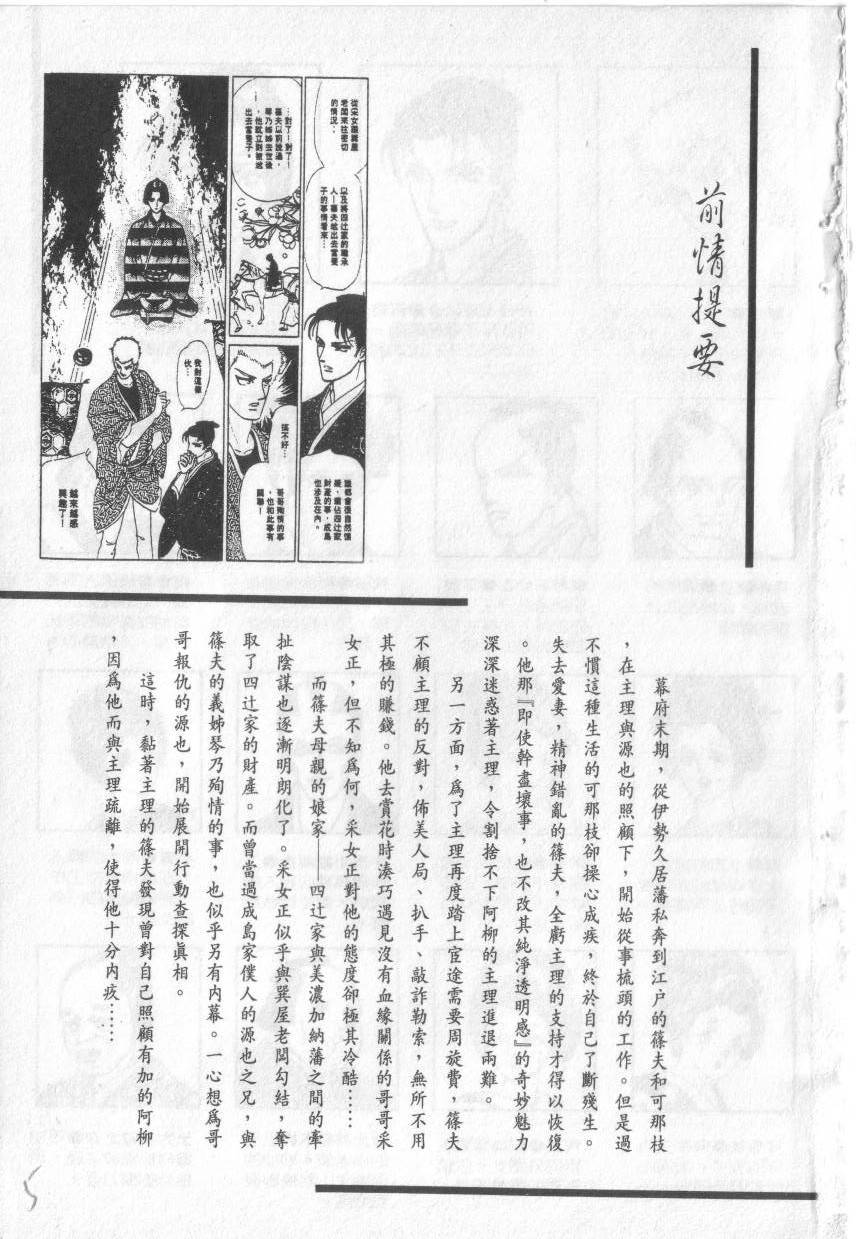 前情提要
從采女跟巽屋
老闆來往密切
的情況…
以及將四辻家的繼承
人—篠夫送出去當養
子的事情看來…
誰都會很自然懷
疑，霸佔四辻家
財產的事，成島
也涉及在內。
…對了！對了！
篠夫以前說過，
琴乃姊姊去世後
，他就立刻被送
出去當養子。
…
搞不好…
哥哥殉情的事
，也和此事有
關聯！
我對這傢
伙…
越來越感
興趣了！
幕府末期，從伊勢久居藩私奔到江戶的篠夫和可那枝
，在主理與源也的照顧下，開始從事梳頭的工作。但是過
不慣這種生活的可那枝卻操心成疾，終於自己了斷殘生。
失去愛妻，精神錯亂的篠夫，全虧主理的支持才得以恢復
。他那『即使幹盡壞事，也不改其純淨透明感』的奇妙魅力
深深迷惑著主理，令割捨不下阿柳的主理進退兩難。
另一方面，爲了主理再度踏上宦途需要周旋費，篠夫
不顧主理的反對，佈美人局、扒手、敲詐勒索，無所不用
其極的賺錢。他去賞花時湊巧遇見沒有血緣關係的哥哥采
女正，但不知爲何，采女正對他的態度卻極其冷酷……
而篠夫母親的娘家——四辻家與美濃加納藩之間的牽
扯陰謀也逐漸明朗化了。采女正似乎與巽屋老闆勾結，奪
取了四辻家的財產。而曾當過成島家僕人的源也之兄，與
篠夫的義姊琴乃殉情的事，也似乎另有內幕。一心想爲哥
哥報仇的源也，開始展開行動查探眞相。
這時，黏著主理的篠夫發現曾對自己照顧有加的阿柳
，因爲他而與主理疏離，使得他十分內疚……
5